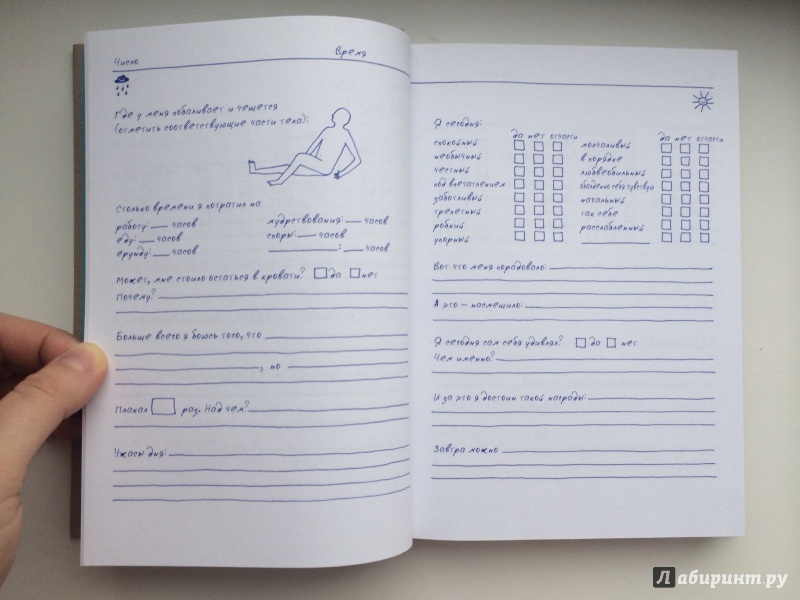 Число Время
Где у меня побаливает и чешется
(отметить соответствующие части тела):
Сколько времени я потратил на
работу: ___ часов мудрствования: ___ часов
еду: ___ часов споры: ___ часов
ерунду: ___ часов ___ : ___ часов
Может, мне стоило остаться в кровати? да нет
Почему?
Больше всего я боюсь того, что
, но
Плакал раз. Над чем?
Ужасы дня:
Я сегодня:
да нет отчасти да нет отчасти
спокойный молчаливый
необычный в порядке
честный любвеобильный
под впечатлением обалденно себя чувствую
заботливый нахальный
трепетный так себе
робкий расслабленный
упорный
Вот что меня порадовало:
А это — насмешило:
Я сегодня сам себя удивлял? да нет
Чем именно?
И за это я достоин такой награды:
Завтра можно
Лабиринт.ру